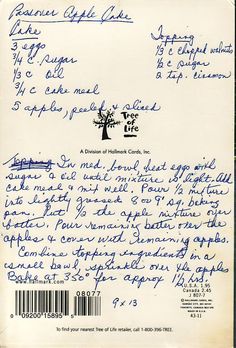 Passover Apple Cake
Cake
3 eggs
3/4 C. sugar
1/3 C oil
3/4 C cake meal
5 apples, peeled & sliced
Topping
1/3 C chopped walnuts
1/2 C. sugar
2 tsp. cinnamon
Tree of Life
A Division of Hallmark Cards, Inc.
Topping In med. bowl beat eggs with
sugar & oil until mixture is light. Add
cake meal & mix well. Pour 1/2 mixture
into lightly greased 8 or 9" sq. baking
pan. Put 1/2 the apple mixture over
batter. Pour remaining batter over the
apples & cover with remaining apples.
Combine topping ingredients in a
small bowl, sprinkle over the apples
Bake at 350° for approx 1 1/4 hrs.
www.hallmark.com
08077
0 09200 15895 5
9 x 13
U.S.A. 1.95
Canada 2.45
J 807-7
43-11
To find your nearest Tree of Life retailer, call 1-800-396-TREE.